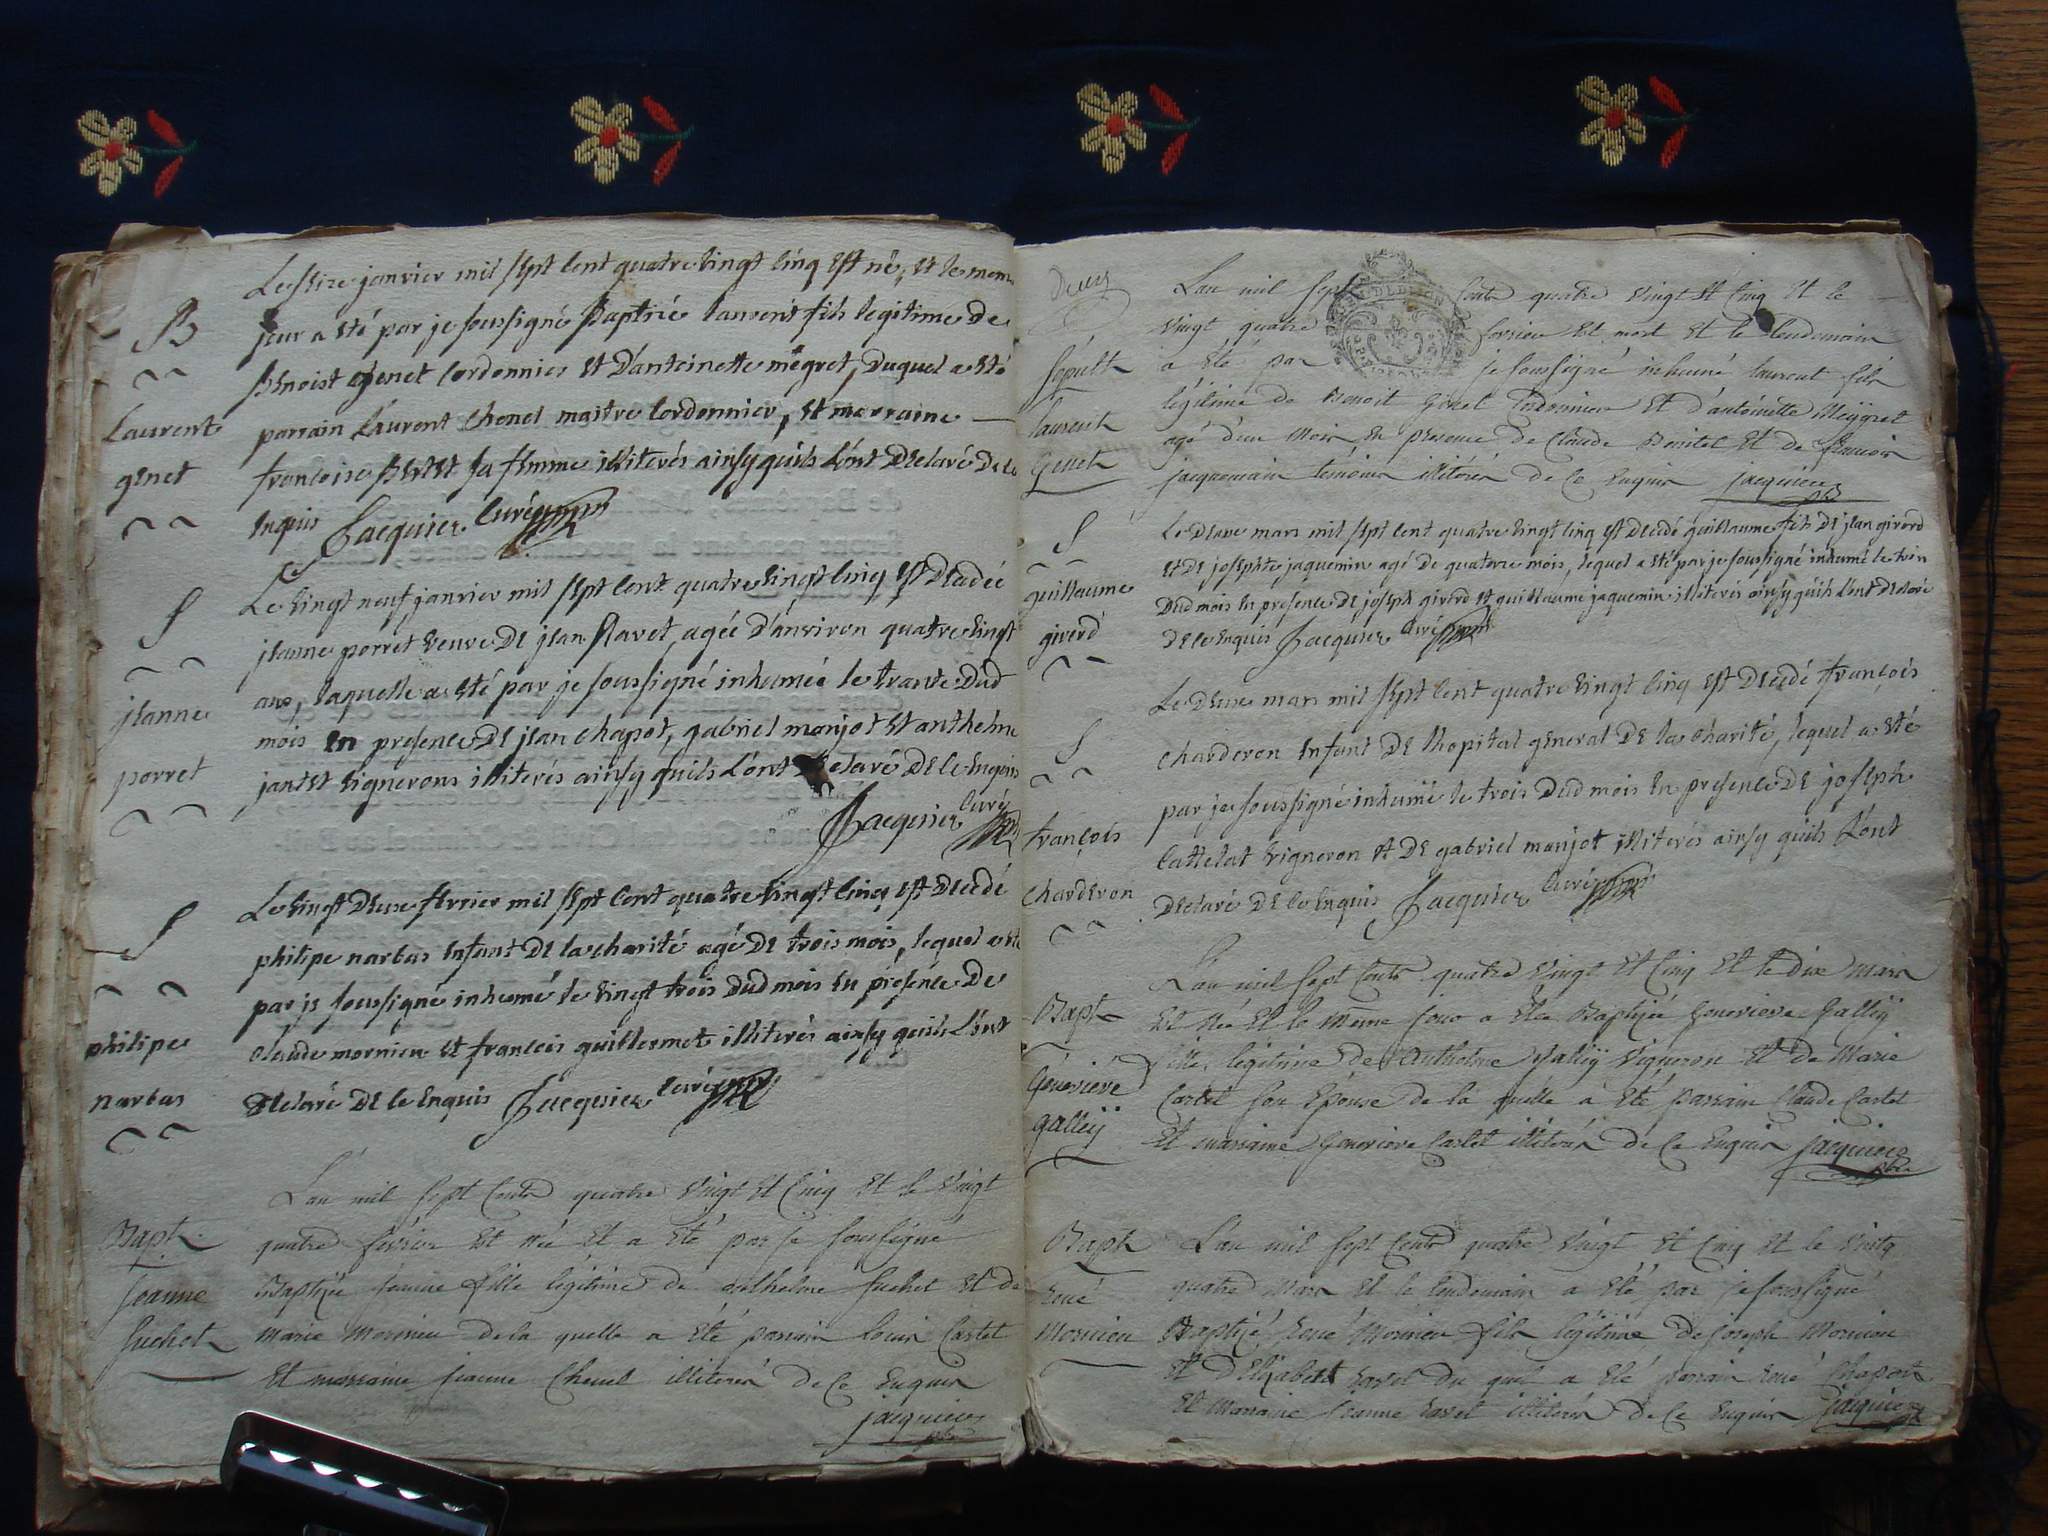 B
Laurent
genet
Le seize janvier mil sept cent quatre vingt cinq est né, et le mem
jour a eté par je soussigné Baptisé laurent fils legitime de
Benoist genet cordonnier et d'antoinette mégret, duquel a eté
parrain Laurent Chenel maitre cordonnier, et marraine
francoise sa femme illiterés ainsy quils l'ont declaré de ce
enquis Jacquier curé
S
jeanne
porret
Le vingt neuf janvier mil sept cent quatre vingt cinq est decedée
jeanne porret veuve de jean Ravet, agée d'environ quatre vingt
ans, laquelle a eté par je soussigné inhumée le trante dud
mois en presence de jean chapot, gabriel monjot et anthelme
jantet vignerons illiterés ainsy quils l'ont declaré de ce enquis
Jacquier curé
S
philipe
narbas
Le vingt deux fevrier mil sept cent quatre vingt cinq est decedé
philipe narbas enfant de la charité agé de trois mois, lequel a eté
par je soussigné inhumé le vingt trois dud mois en présence de
claude mornieu et francois guillermet illiterés ainsy quils l'ont
declaré de ce enquis Jacquier curé
Bapt
jeanne
fuchot
L'an mil sept cents quatre vingt et cinq et le vingt
quatre février est née et a été par je soussigné
Baptizée jeanne fille légitime de anthelme fuchet et de
marie mornieu de la quelle a été parrain louis Castel
et marraine jeanne Chenel illiterés de ce enquis
jacquier
Sépult
laurent
Genet
L'an mil sept cents quatre vingt et cinq et le
vingt quatre fevrier est mort et le lendemain
a été par je soussigné inhumé laurent fils
légitime de Benoit Genet Cordonnier et d'antoinette Meygret
agé d'un mois en presence de Claude et de francois
jacquemain témoins illitérés de ce enquis jacquier
S
guillaume
girerd
Le deux mars mil sept cent quatre vingt cinq est decedé guillaume fils de jean girerd
et de josephte jaquemin agé de quatorze mois, lequel a eté par je soussigné inhumé le trois
dud mois en presence de joseph girerd et guillaume jaquemin illiterés ainsy quils l'ont declaré
de ce enquis Jacquier curé
S
françois
charderon
Le deux mars mil sept cent quatre vingt cinq est decedé françois
charderon enfant de lhopital general de la charité, lequel a eté
par je soussigné inhumé le trois dud mois en presence de joseph
Cattelat vigneron et de gabriel monjot illiterés ainsy quils l'ont
declaré de ce enquis Jacquier curé
Bapt
Génevieve
Galley
L'an mil sept cents quatre vingt et cinq et le dix mars
est née et le même jour a été Baptizée Génevieve Galley
fille légitime de Anthelme Galley vigneron et de Marie
Castel son épouse de la quelle a été parrain Claude Castel
et marraine Génevieve Castel illitérés de ce enquis jacquier
Bapt
René
Mornieu
L'an mil sept cents quatre vingt et cinq et le vintg
quatre mars et le lendemain a été par je soussigné
Baptizé René Mornieu fils légitime de joseph Mornieu
et d'Elizabeth Ravet du quel a été parrain René Chapot
et marraine jeanne Ravet illitérés de ce enquis jacquier